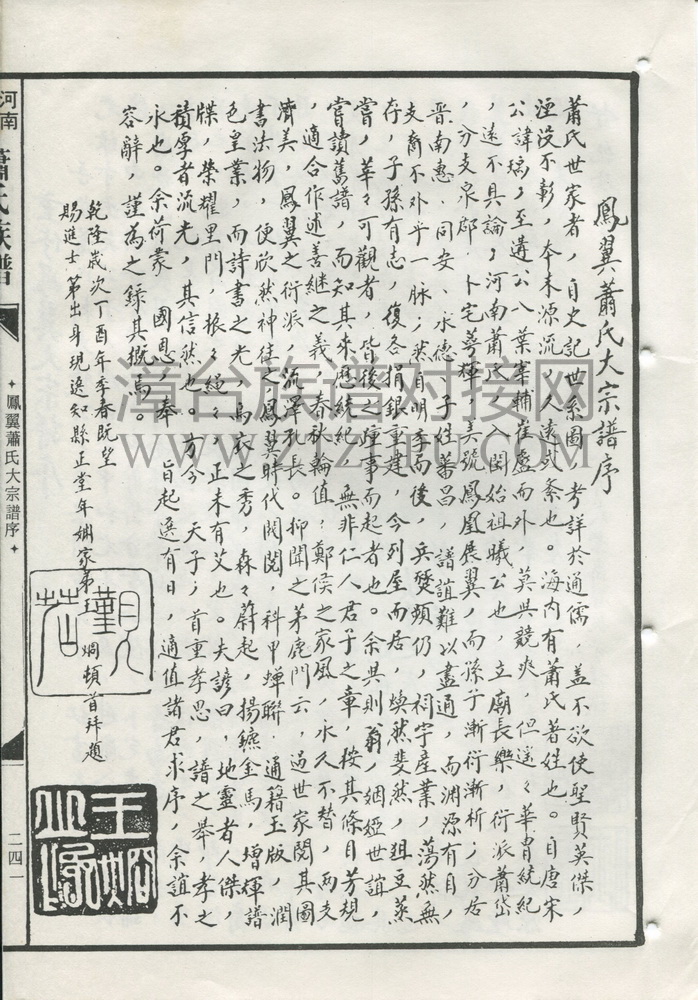 鳳翼蕭氏大宗譜序
蕭氏世家者，自史記世系圖，考詳於通儒，蓋不欲使聖賢英傑，
湮没不彰，本末源流，久遠或紊也。海内有蕭氏著姓也。自唐宋
公諱瑀，至遘公八葉宰輔崔盧而外，莫與競爽，但遥々華胄統紀
，遠不具論，河南蕭氏，入閩始祖曦公也，立廟長樂，衍派蕭岱
，分支泉郡，卜宅萼輝，美號鳳凰展翼，而孫子漸衍漸析，分居
晋南惠、同安、永德、子姓蕃昌，譜誼難以盡通，而渊源有自，
支裔不外乎一脉，然自明季而後，兵燹頻仍，祠宇産業，蕩然無
存，子孫有志，復各捐銀重建，今列屋而居，焕然斐然，俎豆蒸
嘗，華々可觀者，皆後之踵事而起者也。余與則翁，姻婭世誼，
嘗讀舊譜，而知其来歷統紀，無非仁人君子之章，按其條目芳規
，適合作述善継之義，春秋輪值，鄭侯之家風，永久不替，而支
濟美，鳳翼之衍派，流澤孔長。抑聞之茅鹿門云，過世家閲其圖
書法物，便欣然神往之鳳翼時代閥閲，科甲蟬聯，通籍玉版，潤
色皇業，而詩書之光，烏衣之秀，森々蔚起，揚鑣金馬，增輝譜
牒，榮耀里門，振々繩々，正未有艾也。夫諺曰，地靈者人傑，
積厚者流光，其信然也。方今 天子，首重孝思，譜之舉，孝之
永也。余荷蒙 國恩，奉 旨起選有日，適值諸君求序，余誼不
容辭，謹為之録其概焉。
乾隆歲次丁酉年季春既望
賜進士第出身現選知縣正堂年姻家弟 烱頓首拜題
河南 蕭氏族譜
鳳翼蕭氏大宗譜序
二四一
漳台族谱对接网
www.ztzupu.com